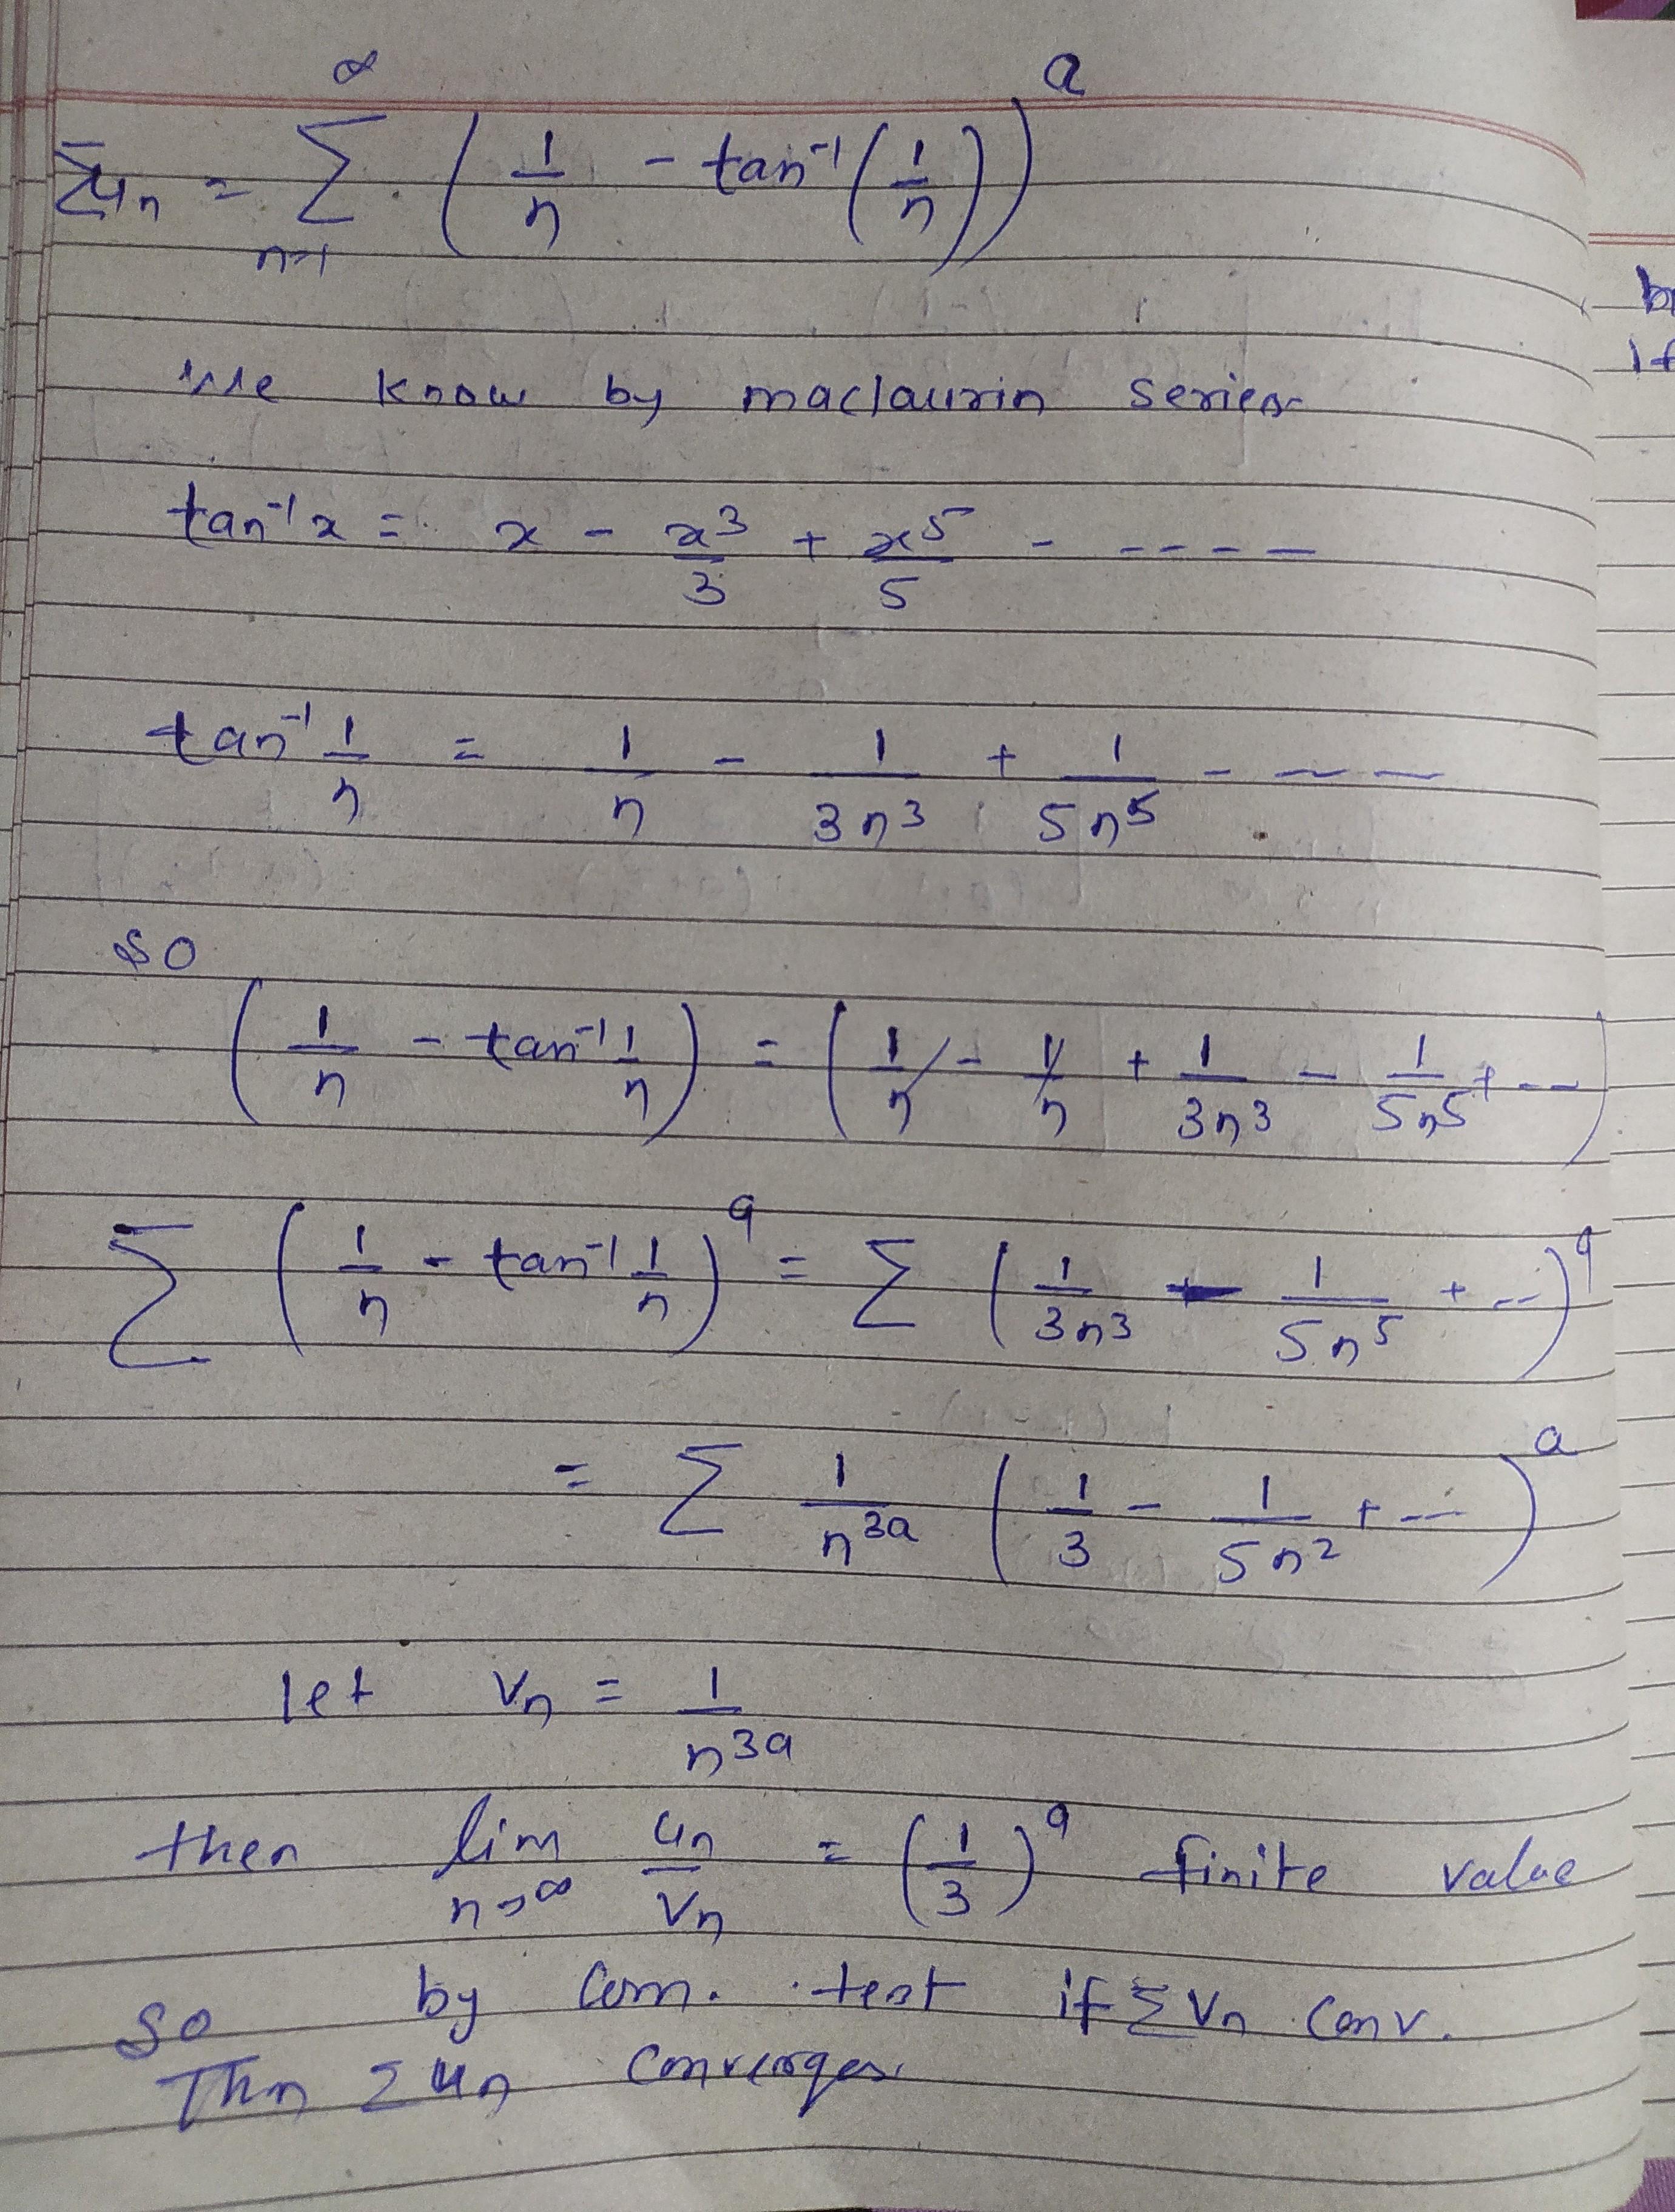 ∞ a
Σu_n = Σ_{n=1} (1/n - tan⁻¹(1/n))
We know by maclaurin series
tan⁻¹x = x - x³/3 + x⁵/5 - ----
tan⁻¹ 1/n = 1/n - 1/3n³ + 1/5n⁵ - ---
so
(1/n - tan⁻¹ 1/n) = (1/n - 1/n + 1/3n³ - 1/5n⁵ + --)
Σ (1/n - tan⁻¹ 1/n)^a = Σ (1/3n³ - 1/5n⁵ + --)^a
= Σ 1/n^{3a} (1/3 - 1/5n² + ---)^a
let v_n = 1/n^{3a}
then lim_{n→∞} u_n/v_n = (1/3)^a finite value
so by Com. test if Σv_n Conv.
Thn Σu_n Converges
b
if